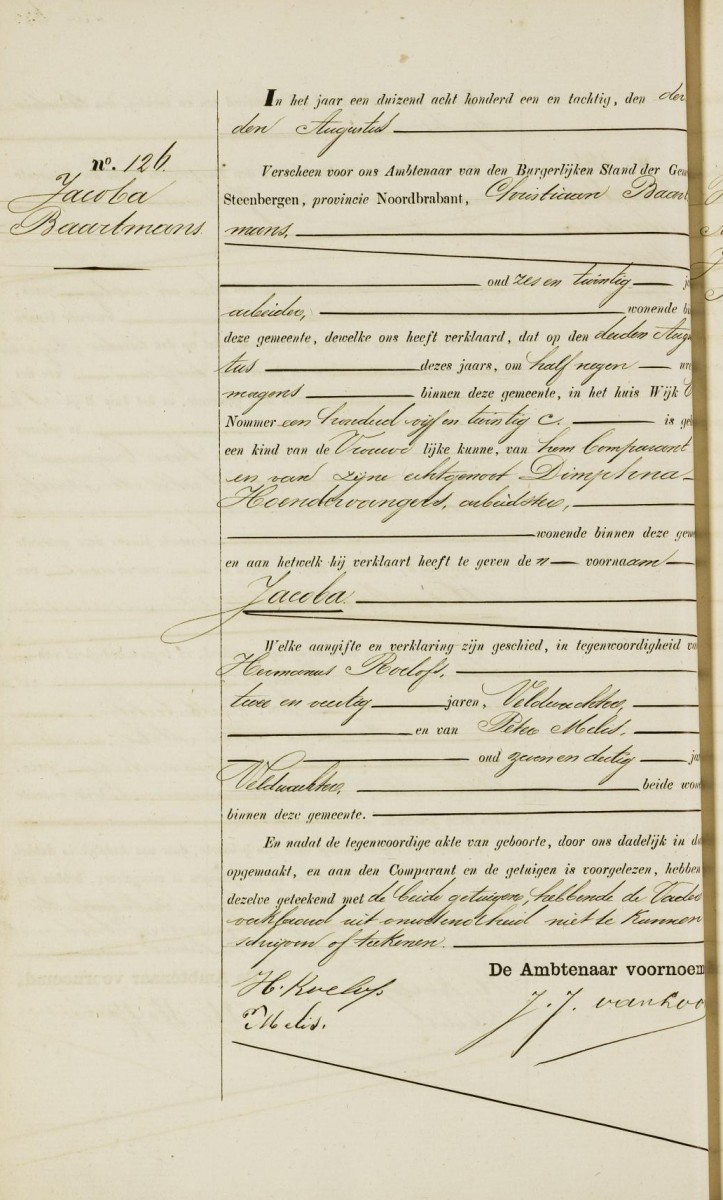 nº. 126.
Jacoba
Baartmans
In het jaar een duizend acht honderd een en tachtig, den der
den Augustus
Verscheen voor ons Ambtenaar van den Burgerlijken Stand der Gem
Steenbergen, provincie Noordbrabant, Christiaan Baart
mans,
oud zes en twintig j
arbeider, wonende bi
deze gemeente, dewelke ons heeft verklaard, dat op den derden Augus
tus dezes jaars, om half negen ure
morgens binnen deze gemeente, in het huis Wijk
Nommer een honderd vijf en twintig c. is geb
een kind van de Vrouwe lijke kunne, van hem Comparant
en van zijne echtgenoot Dimphna
Hoendervangers, arbeidster,
wonende binnen deze gem
en aan hetwelk hij verklaart heeft te geven de n voornaam
Jacoba.
Welke aangifte en verklaring zijn geschied, in tegenwoordigheid va
Hermanus Roelofs,
twee en veertig jaren, Veldwachter,
en van Peter Melis,
oud zeven en dertig ja
Veldwachter, beide wone
binnen deze gemeente.
En nadat de tegenwoordige akte van geboorte, door ons dadelijk in du
opgemaakt, en aan den Comparant en de getuigen is voorgelezen, hebben
dezelve geteekend met de beide getuigen, hebbende de Vader
verklaard uit onwetendheid niet te kunnen
schrijven of teekenen.
De Ambtenaar voornoem
H. Roelofs
P Melis.
J. J. van Loo